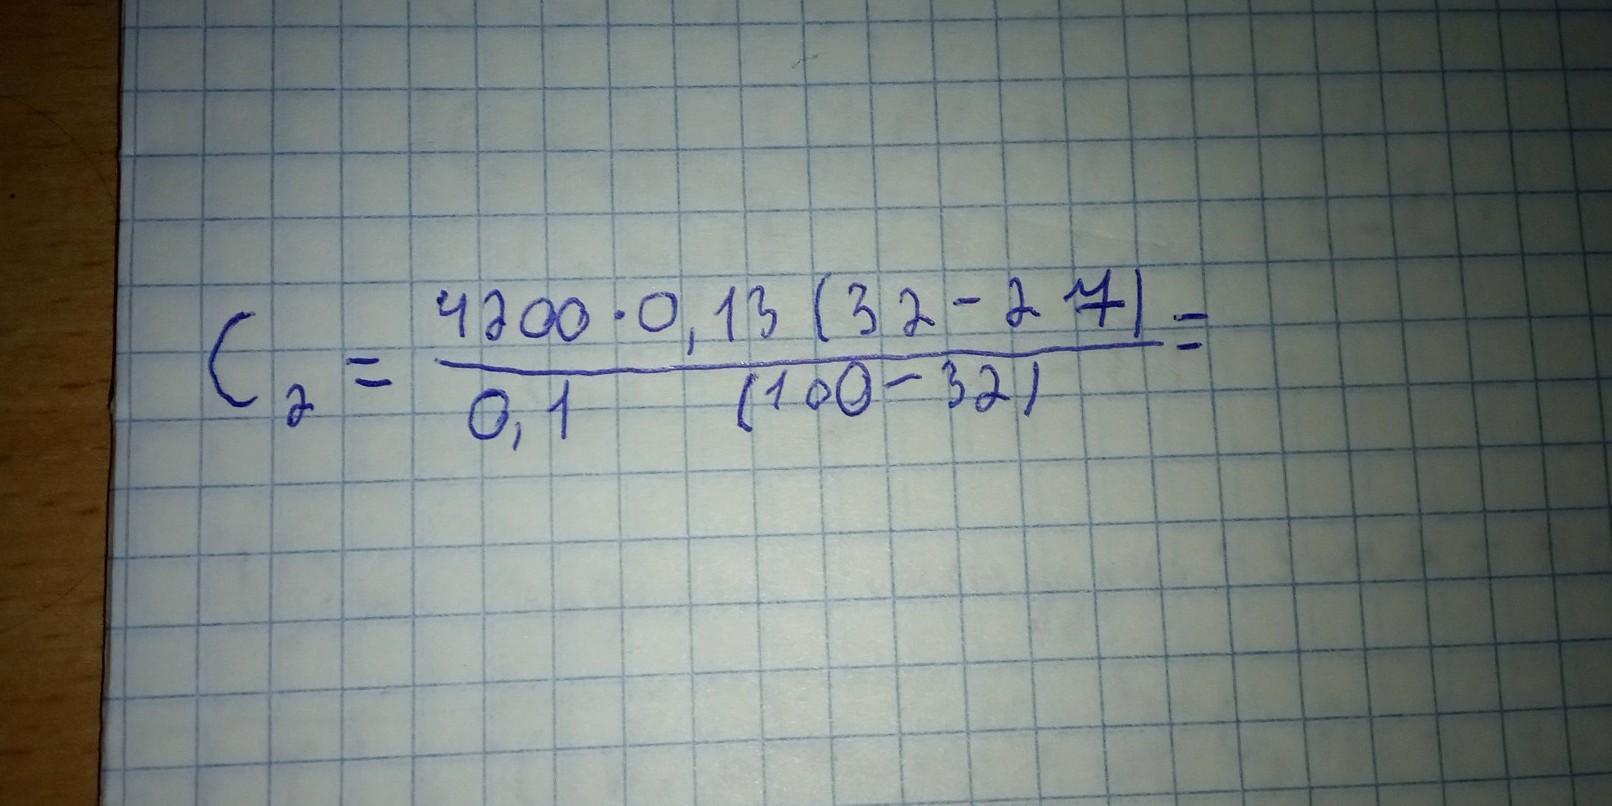 C₂ = 4200·0,13 (32-27) =
0,1 (100-32)